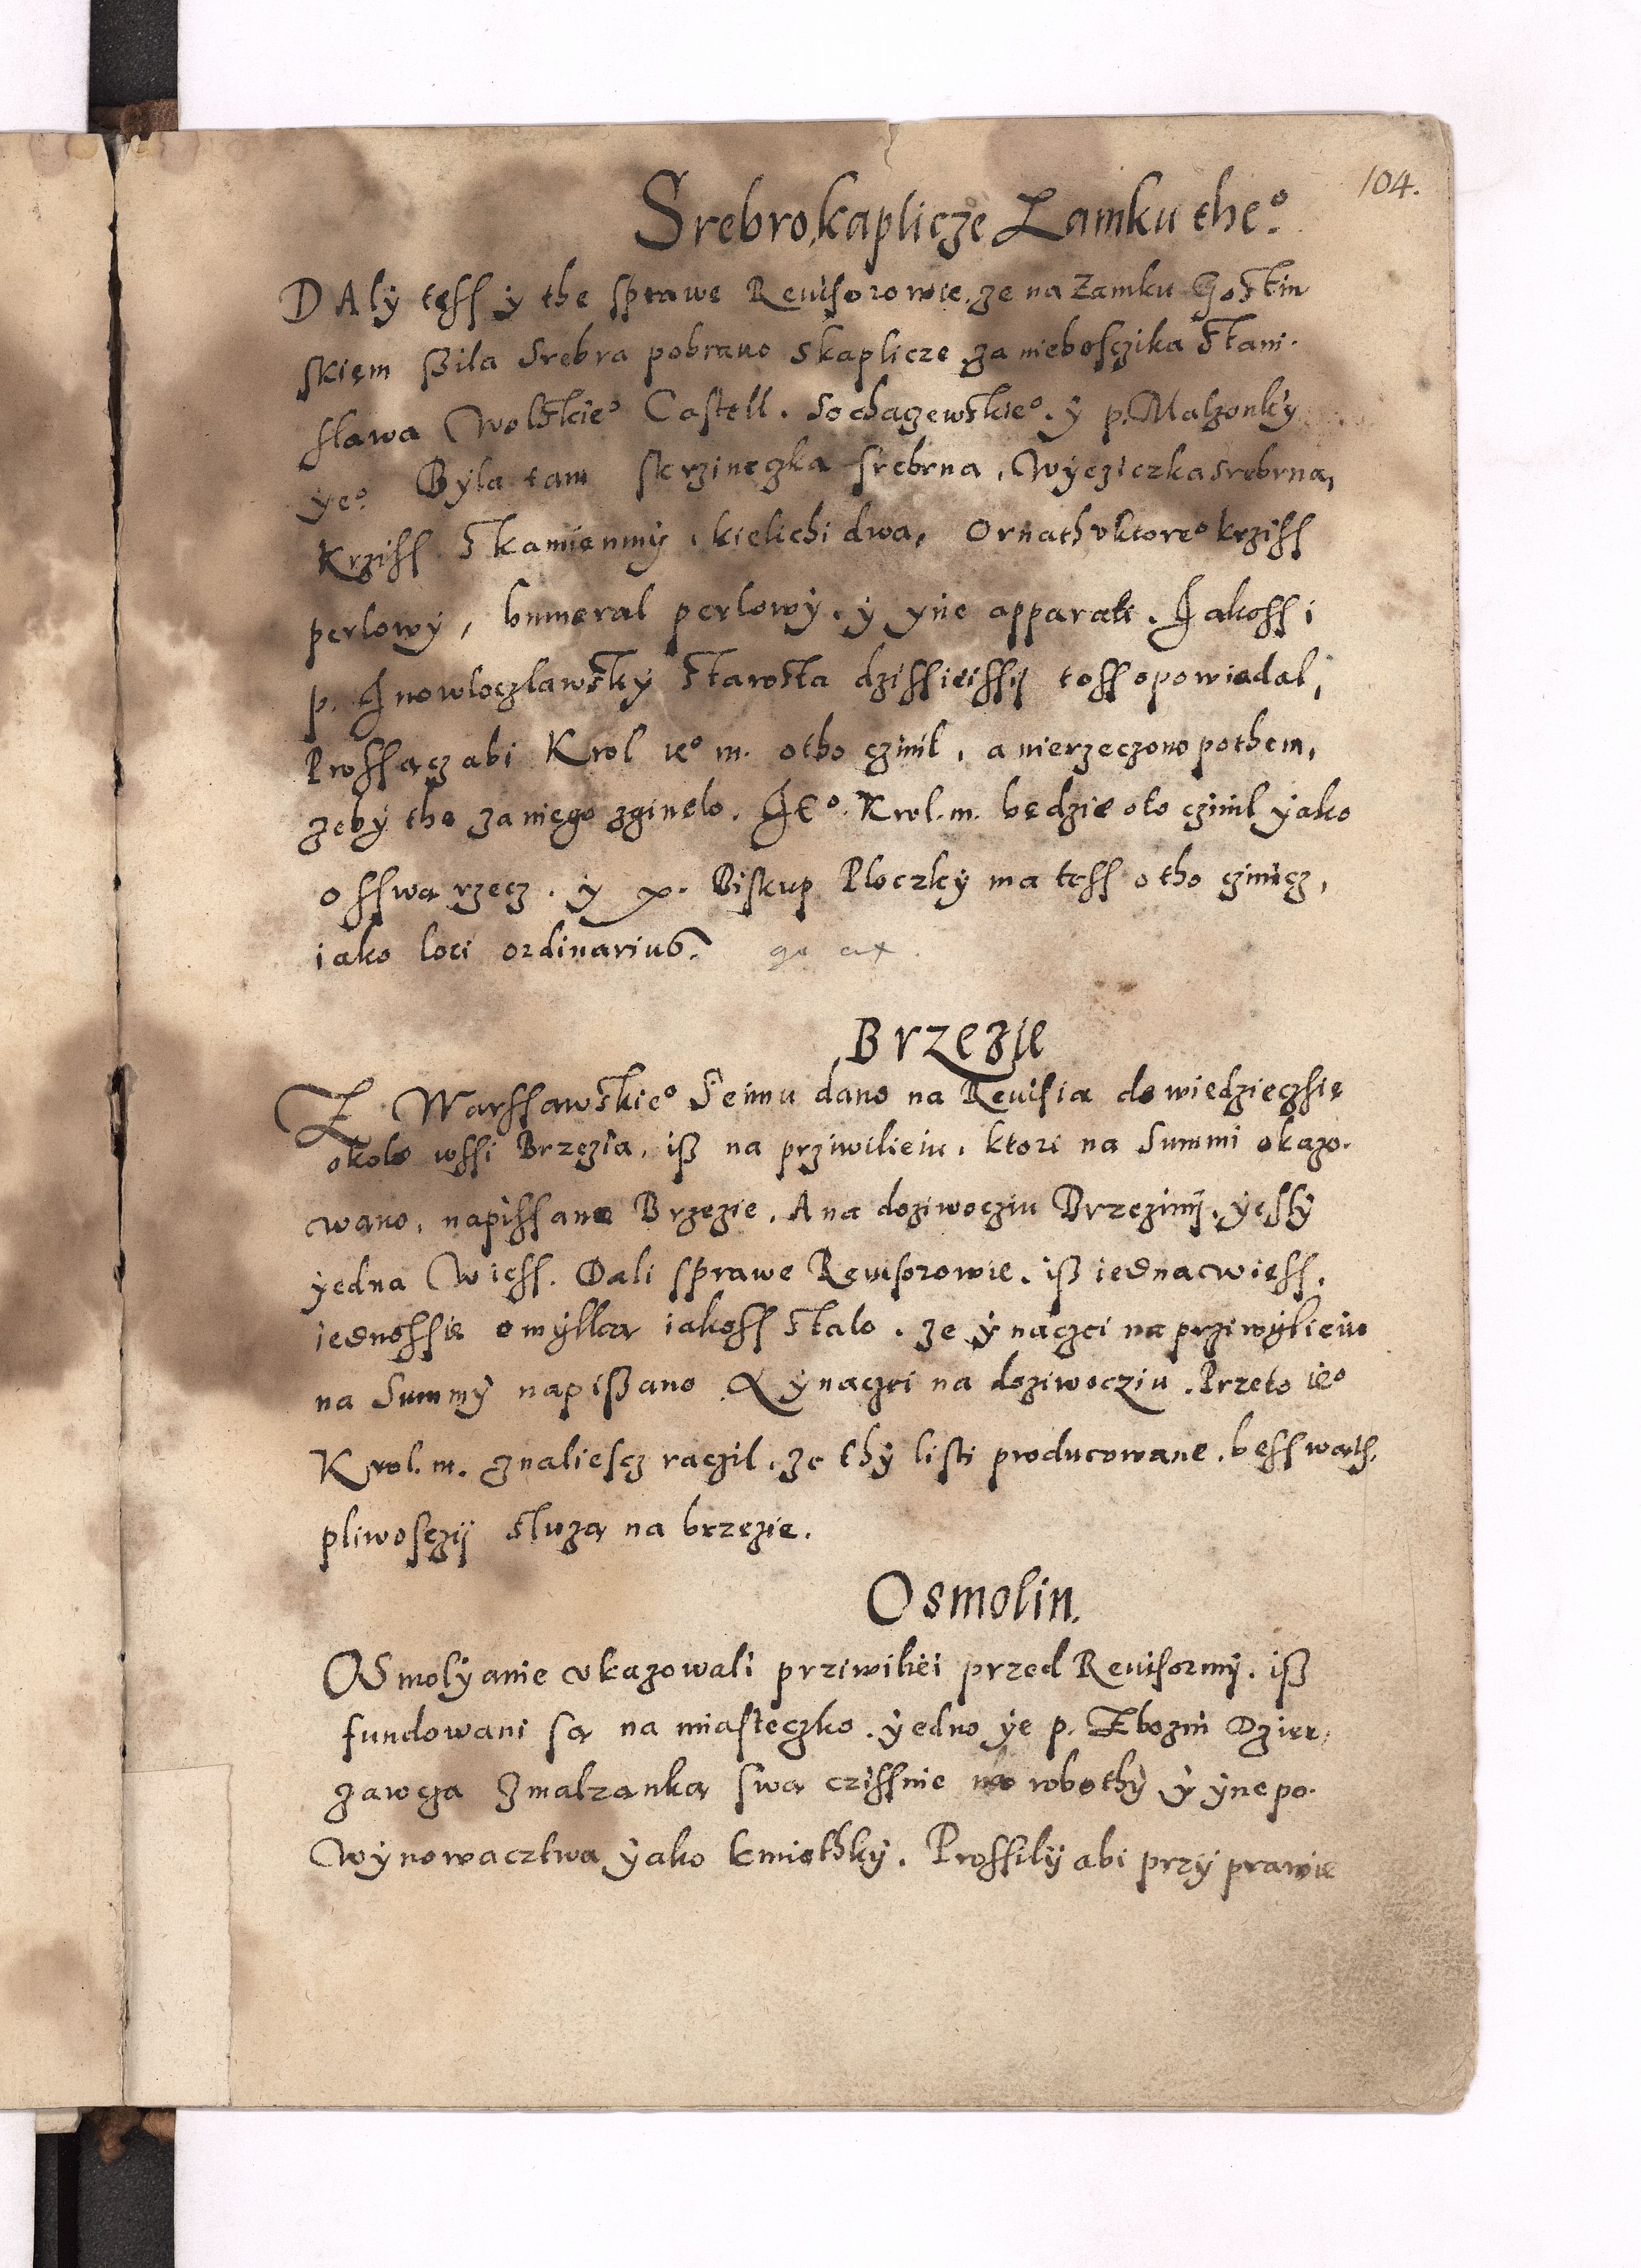 104.
Srebro kaplicze Zamku the°.
DAly tęss ẏ the sprawe Reuisorowie. ze na Zamku Gostin
skięm ßila Srebra pobrano skaplicze za niebosczika Stani.
slawa Wolskie° Castell. Sochaczewskie°. ẏ p. Malzonkẏ
ye°. Byla tam skrzineczka srebrna, Wyeziczka srebrna,
Krziss skamienmy, kielichi dwa, Ornath vktore° krziss
perlowẏ, humeral perlowẏ. ẏ yńe apparati. Jakoss i
p. Jnowloczlawskẏ Starosta dzissieissij toss opowiadal,
Prossącz abi Krol ie° m. otho czinil, a nierzeczono pothem,
zebẏ tho zaniego zginelo. JE°. Krol. m. bedzie oto czinil ẏako
o sswa rzecz. ẏ x. Biskup Ploczkẏ ma tess o tho czinicz,
iako loci ordinarius.
Brzezie
Z Warssawskie° Seimu dano na Reuisią dowiedziecz sie
okolo wssi Brzezia, iß na prziwileiu, ktori na Summi okazo.
wano, napissano Brzezie, A na doziwocziu Brzezinij, ẏeslẏ
ẏedna Wiess. Dali sprawe Reuisorowie. iß iedna wiess.
iednossie omẏlką iakoss stalo. ze ẏnaczei na prziwẏleiu
na Summẏ napißano & ẏnaczei na doziwocziu. Przeto ie°
Krol. m. znaliescz raczil, ze thẏ listi producowane, besswąth,
pliwosczij służą na brzezie.
Osmolin.
OSmolẏanie vkazowali prziwilei przed Reuisormi. iß
fundowani są na miasteczko. ẏedno ẏe p. Zbozni Dzier,
zawcza Zmalzanką swą czissnie na robothẏ ẏ ẏne po.
wẏnowacztwa ẏako kmiothkẏ. Prossilẏ abi przẏ prawie